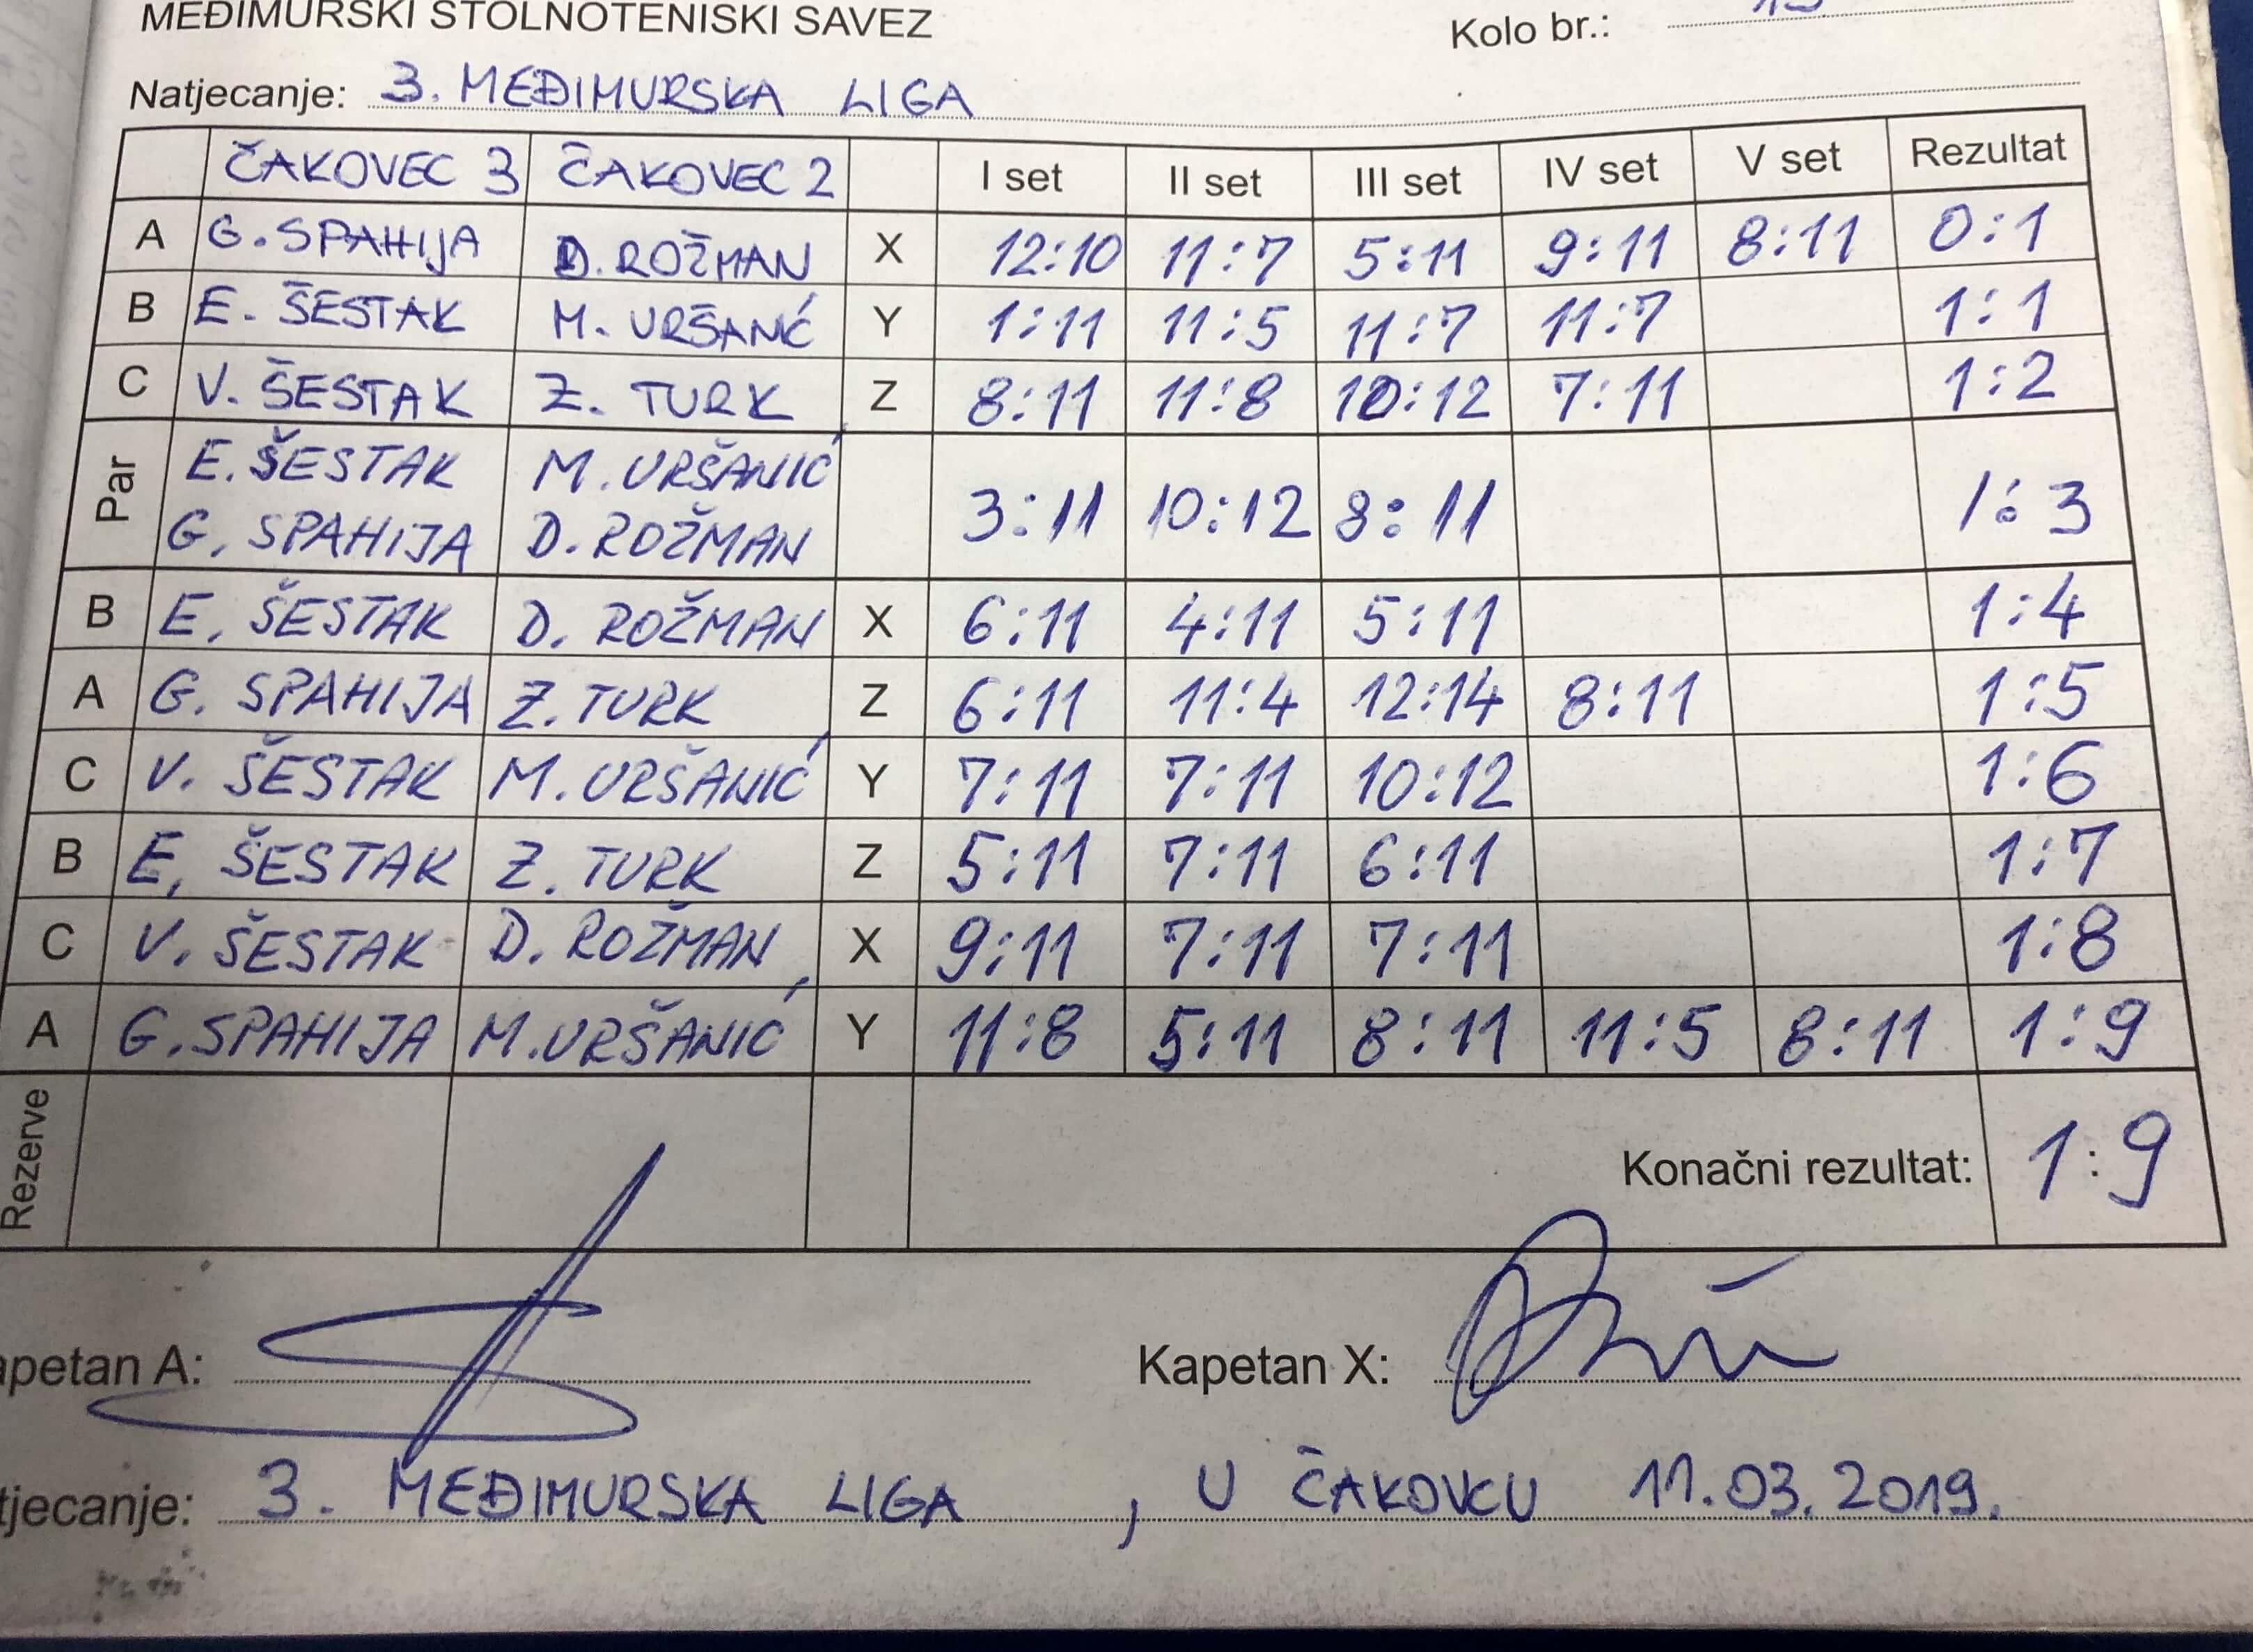 MEĐIMURSKI STOLNOTENISKI SAVEZ
Kolo br.:
Natjecanje: 3. MEĐIMURSKA LIGA
ČAKOVEC 3 ČAKOVEC 2 I set II set III set IV set V set Rezultat
A G. SPAHIJA D. ROŽMAN X 12:10 11:7 5:11 9:11 8:11 0:1
B E. ŠESTAK M. URŠANIĆ Y 1:11 11:5 11:7 11:7 1:1
C V. ŠESTAK Z. TURK Z 8:11 11:8 10:12 7:11 1:2
Par E. ŠESTAK M. URŠANIĆ
G. SPAHIJA D. ROŽMAN 3:11 10:12 8:11 1:3
B E. ŠESTAK D. ROŽMAN X 6:11 4:11 5:11 1:4
A G. SPAHIJA Z. TURK Z 6:11 11:4 12:14 8:11 1:5
C V. ŠESTAK M. URŠANIĆ Y 7:11 7:11 10:12 1:6
B E. ŠESTAK Z. TURK Z 5:11 7:11 6:11 1:7
C V. ŠESTAK D. ROŽMAN X 9:11 7:11 7:11 1:8
A G. SPAHIJA M. URŠANIĆ Y 11:8 5:11 8:11 11:5 8:11 1:9
Rezerve Konačni rezultat: 1:9
apetan A: Kapetan X:
tjecanje: 3. MEĐIMURSKA LIGA , U ČAKOVCU 11.03.2019.